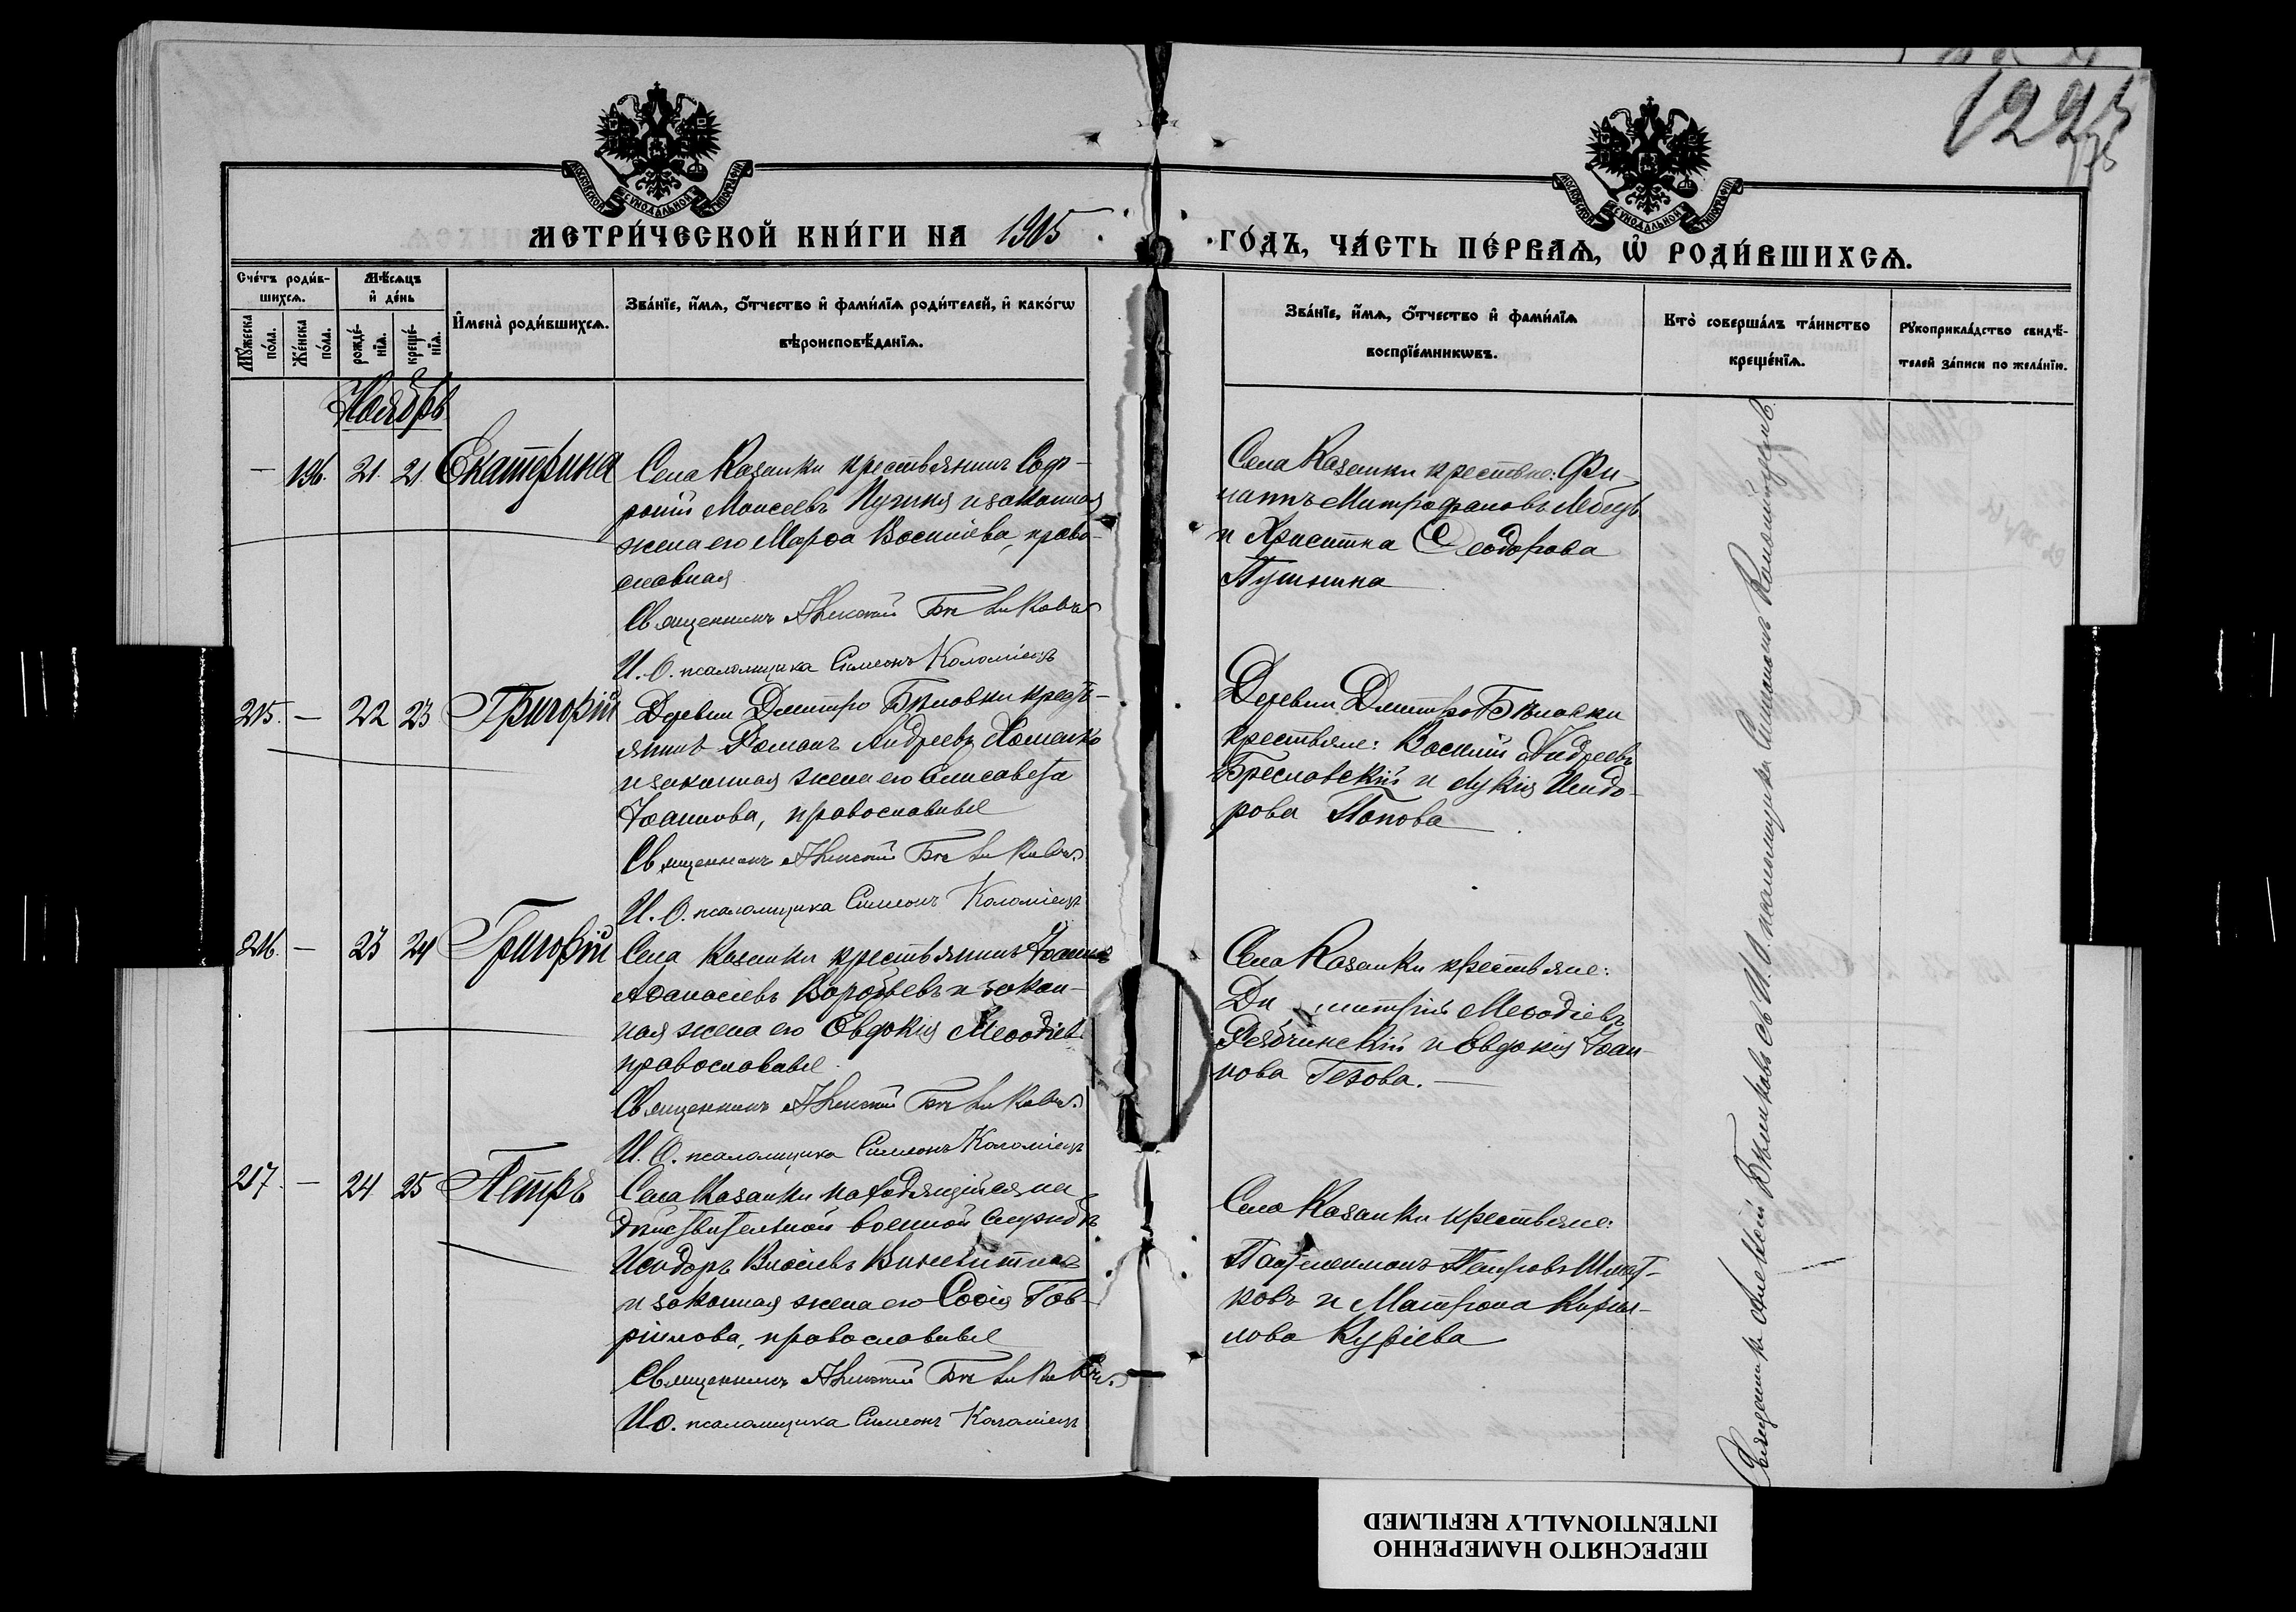 1224
МОСКОВСКОЙ СУНОДАЛЬНОЙ ТИПОГРАФІИ
МОСКОВСКОЙ СУНОДАЛЬНОЙ ТИПОГРАФІИ
МЕТРИ́ЧЕСКОЙ КНИ́ГИ НА 1905
ГО́ДЪ, ЧА́СТЬ ПЕ́РВАѦ, Ѿ РОДИ́ВШИХСѦ.
Сче́тъ роди́в-
шихсѧ.
Мѣ́сѧцъ
и҆ де́нь
Му́жеска по́ла.
Же́нска по́ла.
рожде́-нїѧ.
креще́-нїѧ.
И҆мена̀ роди́вшихсѧ.
Зва́нїе, и҆́мѧ, ѻ҆́тчество и҆ фами́лїѧ роди́телей, и҆ како́гѡ
вѣроисповѣ́данїѧ.
Зва́нїе, и҆́мѧ, ѻ҆́тчество и҆ фами́лїѧ
воспрїе́мникѡвъ.
Кто̀ соверша́лъ та́инство
креще́нїѧ.
Рукоприкла́дство свидѣ́-
телей за́писи по жела́нїю.
Ноябрь
— 196. 21. 21. Екатерина
Села Казанки крестьянинъ Соф-
роній Моисеевъ Пушкя и законная
жена его Марѳа Василіева, право-
славная
Священникъ Алексій Бѣликовъ
И. О. псаломщика Симеонъ Коломіецъ
Села Казанки крестьяне: Фи-
липпъ Митрофановъ Лебедь
и Христина Ѳеодорова
Пушкина
215. — 22 23 Григорій
Деревни Дмитро Бѣловки кресть-
янинъ Романъ Андреевъ Хоменко
и законная жена его Елисавета
Іоаннова, православные
Священникъ Алексій Бѣликовъ
И. О. псаломщика Симеонъ Коломіецъ
Деревни Дмитро Бѣловки
крестьяне: Василій Андреевъ
Бреславскій и Лукія Исидо-
рова Попова
216. — 23 24 Григорій
Села Казанки крестьянинъ Іоаннъ
Аѳанасіевъ Воробьевъ и закон-
ная жена его Евдокія Меѳодіева
православные
Священникъ Алексій Бѣликовъ
И. О. псаломщика Симеонъ Коломіецъ
Села Казанки крестьяне:
Димитрій Меѳодіевъ
Рябчинскій и Евдокія Іоан-
нова Гезова.
217. — 24 25 Петръ
Села Казанки находящійся на
дѣйствительной военной службѣ
Исидоръ
и законная жена его Софія Гав-
ріилова, православные
Священникъ Алексій Бѣликовъ
И. О. псаломщика Симеонъ Коломіецъ
Села Казанки крестьяне:
Пантелеимонъ Петровъ
и Матрона Кирил-
лова Куріева
Священникъ Алексій Бѣликовъ съ И. О. псаломщика Симеономъ Коломійцемъ.
ПЕРЕСНЯТО НАМЕРЕННО
INTENTIONALLY REFILMED